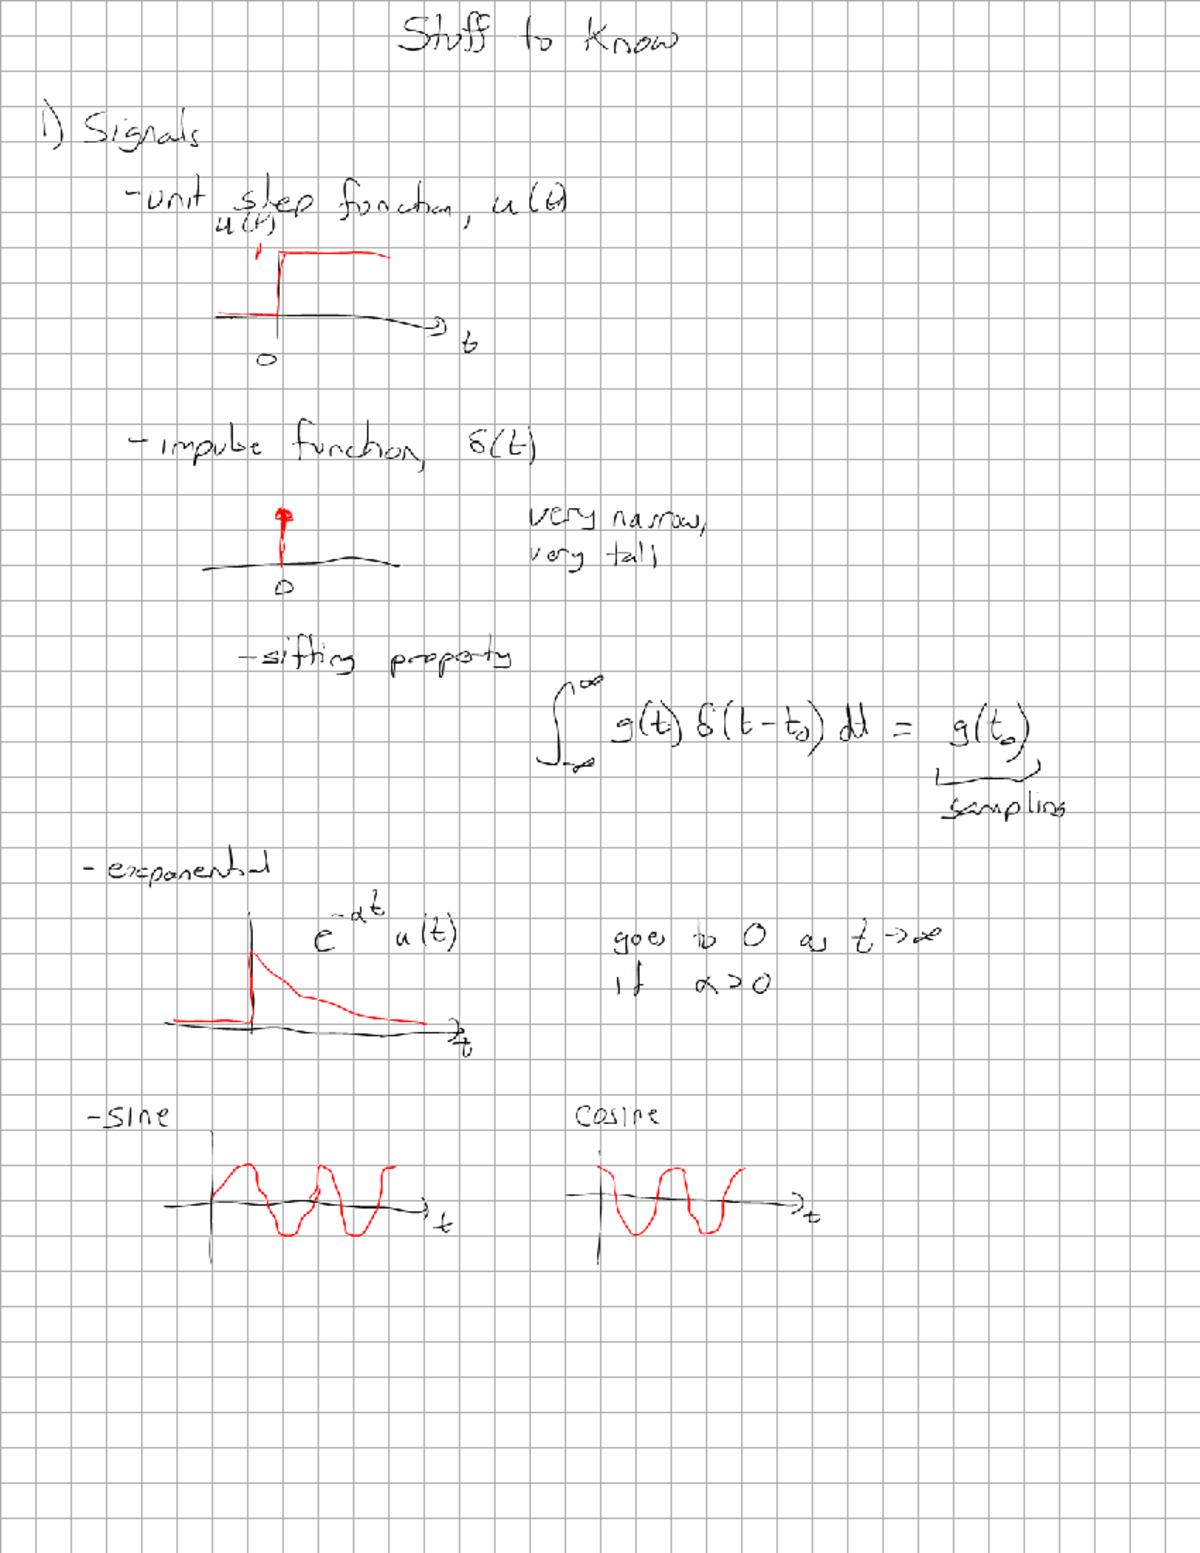 Stuff to Know
1) Signals
- unit step function, u(t)
u(t)
1
t
0
- impulse function, δ(t)
very narrow,
very tall
0
- sifting property
∫_{-∞}^{∞} g(t) δ(t-t₀) dt = g(t₀)
sampling
- exponential
e^{-αt} u(t)
goes to 0 as t→∞
if α>0
t
- sine
cosine
t
t